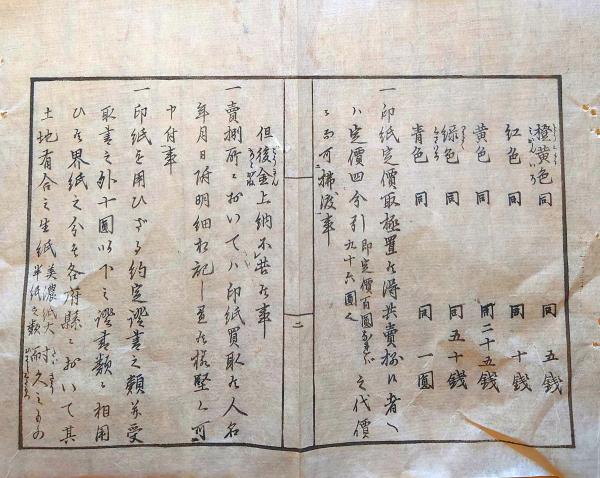 橙黄色 同 同 五錢
紅色 同 同 十錢
黄色 同 同二十五錢
緑色 同 同五十錢
青色 同 同一圓
一印紙定價取極置候得共賣捌候者へ
ハ定價四分引 印定價百圓なれバ 九十六圓 之代價
ニ而可拂渡事
但後金上納不苦候事
一賣捌所ニおいてハ印紙買取候人名
年月日附明細相記し置候様堅く可
申付事
一印紙を用ひざる約定證書之類并受
取書之外十圓以下之證書類ニ相用
ひ候界紙之分者各府縣ニおいて其
土地有合之生紙 美濃紙大 半紙之類 而久之もの
二